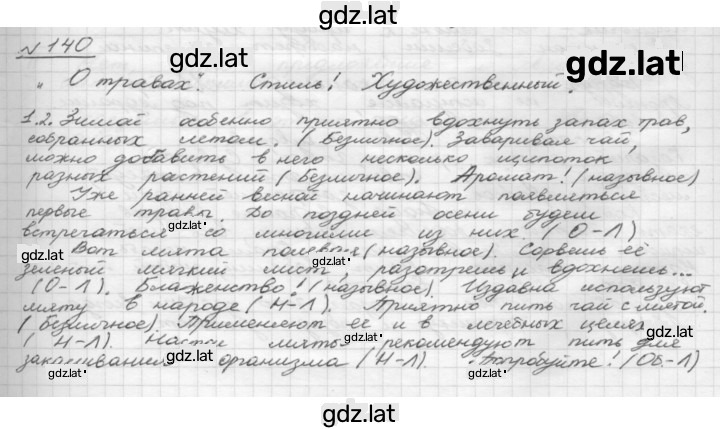 gdz.lat
№140
gdz.lat
gdz.lat
"О травах". Стиль! Художественный.
1.2. Зимой особенно приятно вдохнуть запах трав,
собранных летом. (Безличное). Заваривая чай,
можно добавить в него несколько щипоток
разных растений (Безличное). Аромат! (назывное)
Уже ранней весной начинают появляться
первые травы. До поздней осени будем
gdz.lat
встречаться со многими из них (О-Л)
gdz.lat
Вот мята полевая (назывное). Сорвёшь её
gdz.lat
зеленый мягкий лист, разотрёшь и вдохнешь...
(О-Л). Блаженство! (назывное). Издавна используют
мяту в народе (Н-Л). Приятно пить чай с мятой.
(Безличное). Применяют её и в лечебных целях
gdz.lat
(Н-Л). мяты рекомендуют пить для
gdz.lat
закаливания организма (Н-Л). Попробуйте! (Об-Л)
gdz.lat
gdz.lat